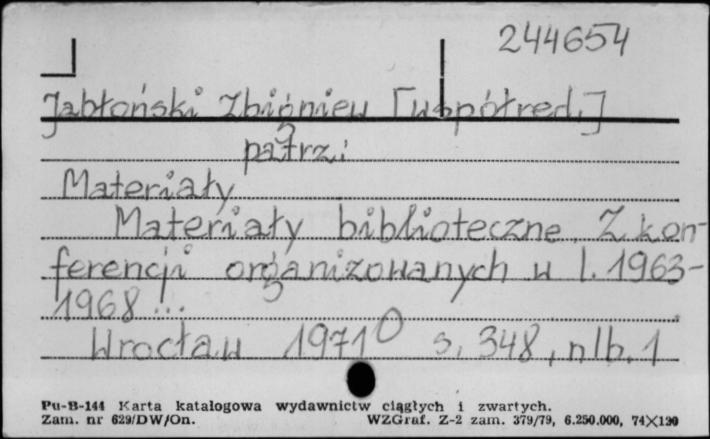 244654
Jabłoński Zbigniew [współred.]
patrz:
Materiały
Materiały biblioteczne. Z kon-
ferencji organizowanych w l. 1963-
1968 ...
Wrocław 1971 s. 348, nlb. 1
Pu-B-144 Karta katalogowa wydawnictw ciągłych i zwartych.
Zam. nr 629/DW/On. WZGraf. Z-2 zam. 379/79, 6.250.000, 74X120